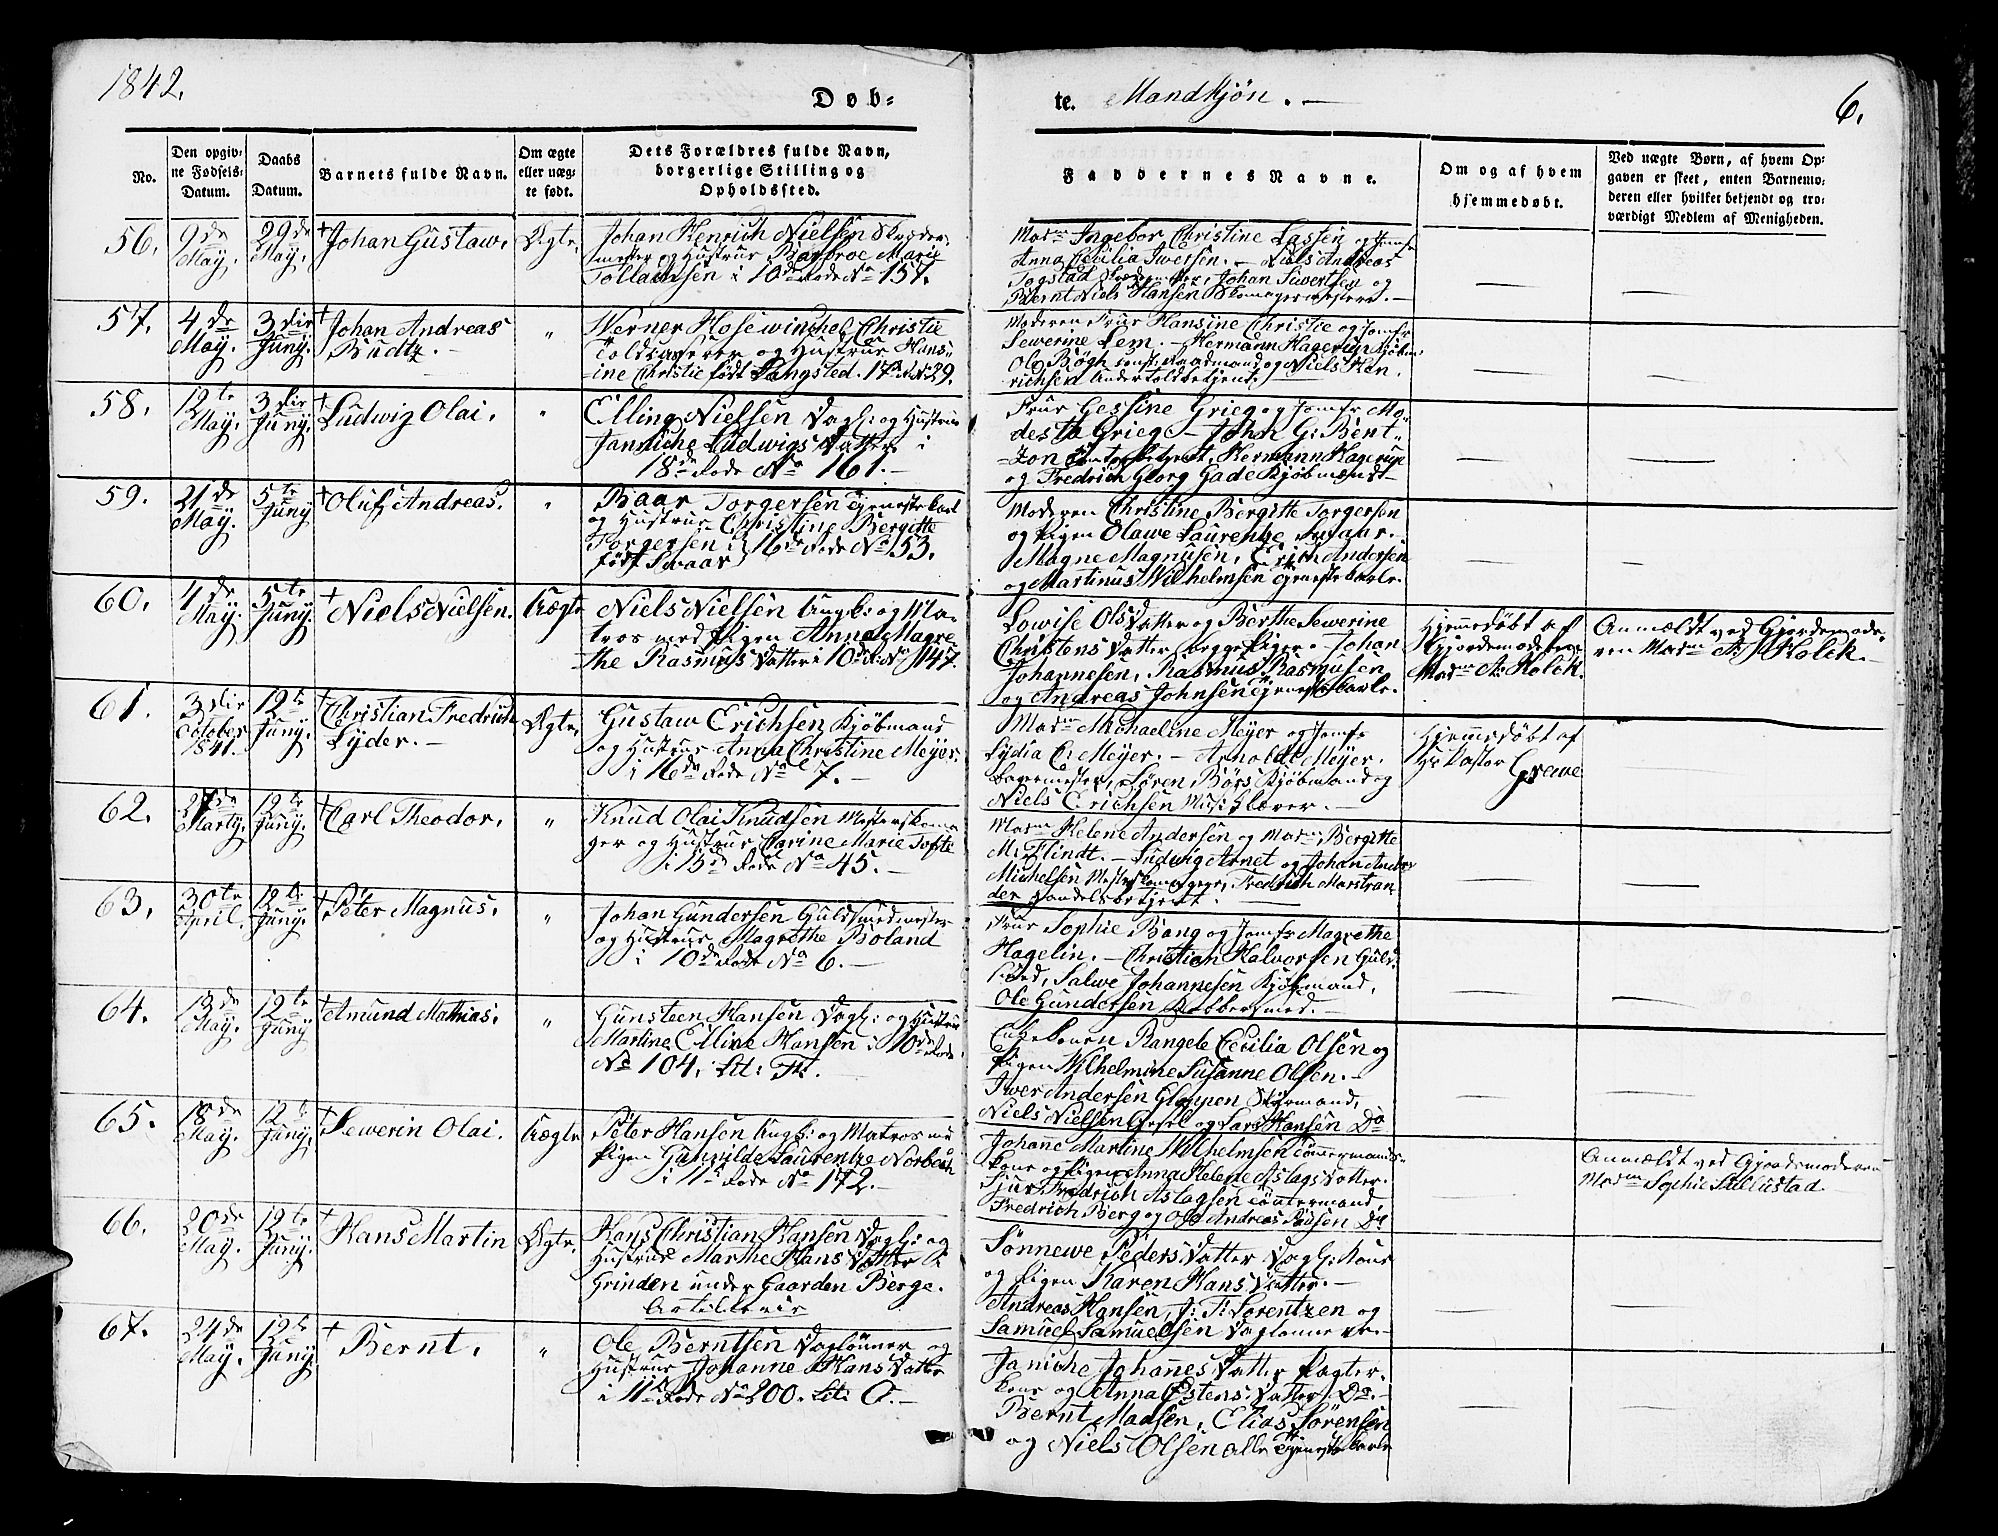 1842.
Døb-
te. Mandkjøn. —
6.
No.
Den opgiv-
ne Fødsels-
Datum.
Daabs
Datum.
Barnets fulde Navn.
Om ægte
eller uæg-
te født.
Dets Forældres fulde Navn,
borgerlige Stilling og
Opholdssted.
Faddernes Navne.
Om og af hvem
hjemmedøbt.
Ved uægte Børn, af hvem Op-
gaven er skeet, enten Barnemo-
deren eller hvilket bekjendt og tro-
værdigt Medlem af Menigheden.
56.
9de
May.
29de
May.
Johan Gustaw.
Ægte.
Johan Henrich Nielsen Skræder-
mester og Hustrue Barbroe Marie
i 10de Rode No 157.
Madm Ingebor Christine Lasten og Jomfr
Anna Cecilia Iwersen. — Niels Andreas
Togstad Johan Siwertsen og
Bernt Niels Hansen Skomagermestere. —
57.
4de
May.
3die
Juny.
Johan Andreas
Budtz. —
"
Werner Hosewinchel Christie
og Hustrue Hans-
ine Christie født Langsted. 17
No 29.
Moderen Frue Hansine Christie og Jomfr
Sewerine Lem. — Hermann Hagerup Kjøbm:
Ole Bøgh og Niels Hen
richsen Undertoldbetjent
58.
12te
May.
3die
Juny.
Ludwig Olai.
"
Elling Nielsen Dagl: og Hustrue
Janniche Ludwigs Datter i
18de Rode No 161. —
Frue Gessine Grieg og Jomfr Mo-
desta Grieg — John G: Bent-
zon Hermann Hagerup
og Fredrich Georg Gade Kjøbmænd —
59.
21de
May.
5te
Juny
Oluf Andreas.
"
Baar Torgersen Tjenestekarl
og Hustrue Christine Bergitte
Torgersen i 16de Rode No 53.
født Swaar
Moderen Christine Bergitte Torgersen
og Pigen Olawe Laurentze Swaar. —
Magne Magnusen, Erich Andersen
og Martinus Wilhelmsen Tjenestekarle.
60.
4de
May.
5te
Juny.
Niels Nielsen.
Uægte
Niels Nielsen Ungk: og Ma-
tros med Pigen Anna Magre
the Rasmus Datter i 10de R: No 147.
Lowise Ols Datter og Berthe Sewerine
Christens Datter begge Piger. — Johan
Johannesen, Rasmus Rasmusen
og Andreas Johnsen Tjenestekarle.
Hjemmedøbt af
Gjordemoderen
Madm A: Holck.
Anmældt ved Gjordemode-
ren Madm A: Holck. —
61.
3die
October
1841.
12te
Juny.
Christian Fredrich
Lyder. —
Ægte.
Gustaw Erichsen Kjøbmand
og Hustrue Anna Christine Meyer.
i 16de Rode No 7. —
Madm Michaeline Meyer og Jomfr
Lydia C: Meyer. — Arnoldt Meyer.
Søren Børs Kjøbmand og
Niels Erichsen Musiklærer. —
Hjemmedøbt af
Hr Pastor Grewe
62.
27de
Marty.
12te
Juny.
Carl Theodor.
"
Knud Olai Knudsen Mesterskoma
ger og Hustrue Carine Marie Tofte
i 13de Rode No 45. —
Madm Helene Andersen og Madm Bergitte
M. Flindt. — Ludwig Arnet og Johan Andreas
Michelsen Mesterskomagere, Fredrich Marstran-
der Handelsbetjent.
63.
30te
April.
12te
Juny.
Peter Magnus.
"
Johan Gundersen Guldsmedmester
og Hustrue Magrethe Boland
i 10de Rode No 6. —
Frue Sophie Bang og Jomfr Magrethe
Hagelin. — Christian Halvorsen Guld-
smed, Salwe Johannesen Kjøbmand,
Ole Gundersen Kobbersmed. —
64.
13de
May.
12te
Juny
Amund Mathias.
"
Gunsteen Hansen Dagl: og Hustrue
Martine Elline Hansen i 10de Rode
No 104. Lit:
Enkekonen Rangele Cecilia Olsen og
Pigen Wilhelmine Susanne Olsen. —
Iwer Andersen Gloppen Styrmand,
Niels Nielsen og Lars Hansen Do
65.
18de
May.
12te
Juny.
Sewerin Olai.
Uægte
Peter Hansen Ungk: og Matros med
Pigen Gunnilde Laurentze Norbech
i 11te Rode No 172. —
Johanne Martine Wilhelmsen Tømmermands-
kone og Pigen Anna Helene Aslags Datter.
Sjur Fredrich Aslagsen Tømmermand,
Fredrich Berg og Ole Andreas Do
Anmældt ved Gjordemoderen
Madm Sophie Sallestad. —
66.
20de
May.
12te
Juny.
Hans Martin
Ægte.
Hans Christian Hansen Dagl: og
Hustrue Marthe Hans Datter i
Grinden under Gaarden Berge.
Sønnewe Peders Datter Dagl: Kone
og Pigen Karen Hans Datter. —
Andreas Hansen, J: F: Lorentzen og
Samuel Samuelsen Daglønnere. —
67.
24de
May.
12te
Juny
Bernt.
"
Ole Berntsen Daglønner og
Hustrue Johanne Hans Datter
i 11te Rode No 200. Lit: O. —
Janiche Johannes Datter
kone og Anna Estens Datter Do. —
Bernt Madsen, Elias Sørensen
og Niels Olsen alle Tjenestekarle